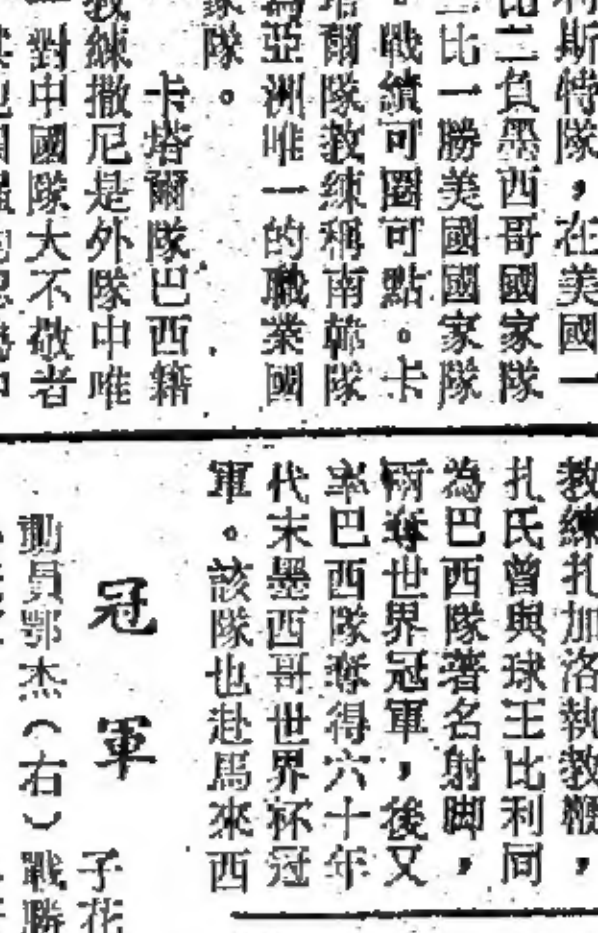 利斯特隊，在美國一
比二負墨西哥國家隊
二比一勝美國國家隊
。戰績可圈可點。卡
塔爾隊教練稱南韓隊
為亞洲唯一的職業國
家隊。
卡塔爾隊巴西籍
教練撒尼是外隊中唯
一對中國隊大不敬者
教練扎加洛執教鞭，
扎氏曾與球王比利同
為巴西隊著名射脚，
兩奪世界冠軍，後又
率巴西隊奪得六十年
代末墨西哥世界杯冠
軍。該隊也赴馬來西
冠軍
子花
動員鄂杰（右）戰勝